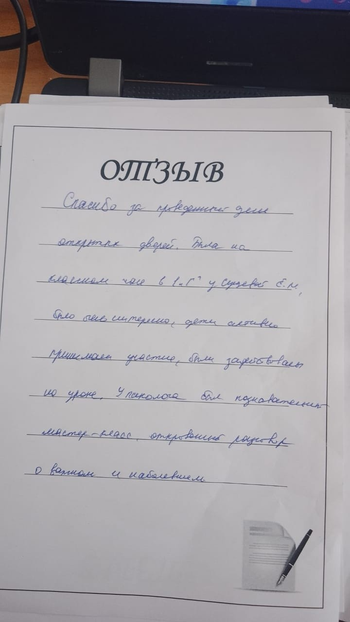 ОТЗЫВ
Спасибо за проведенный день
открытых дверей. Была на
классном часе в 1 "Г" у Е.М,
было очень интересно, дети активно
принимали участие, были задействованы
на уроке. У психолога был познавательный
мастер-класс, откровенный разговор
о важном и наболевшем.